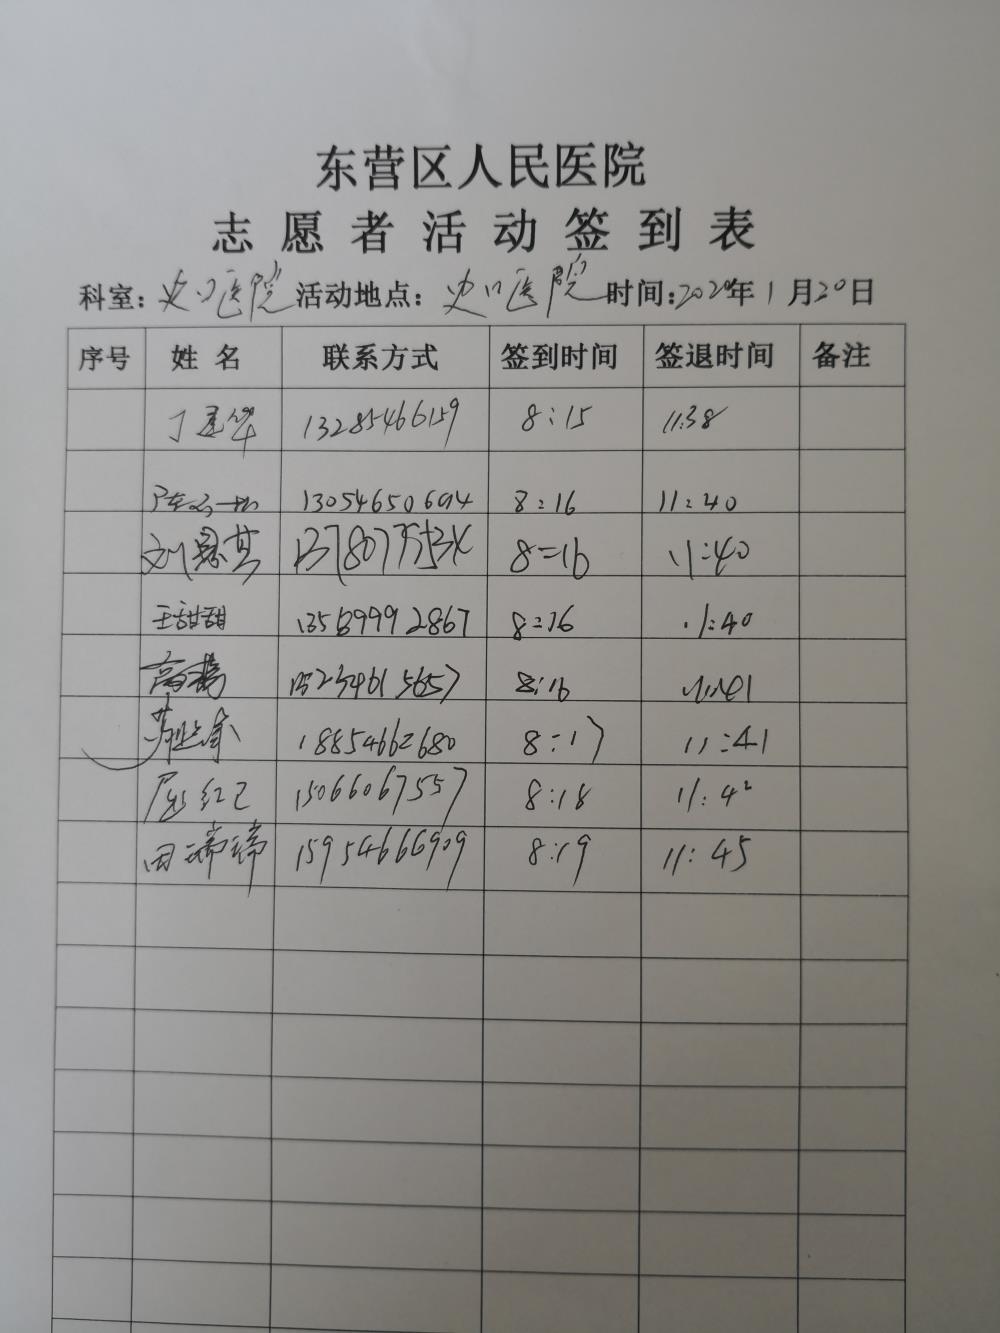 东营区人民医院
志愿者活动签到表
科室: 史口医院 活动地点: 史口医院 时间: 2020年1月20日
序号 姓名 联系方式 签到时间 签退时间 备注
丁建华 13285466159 8:15 11:38
13054650694 8:16 11:40
8:16 11:40
王甜甜 13589992867 8:16 11:40
高 15234615657 8:16
18854662680 8:17 11:41
红 15066067557 8:18 11:42
田瑞瑞 15954666909 8:19 11:45